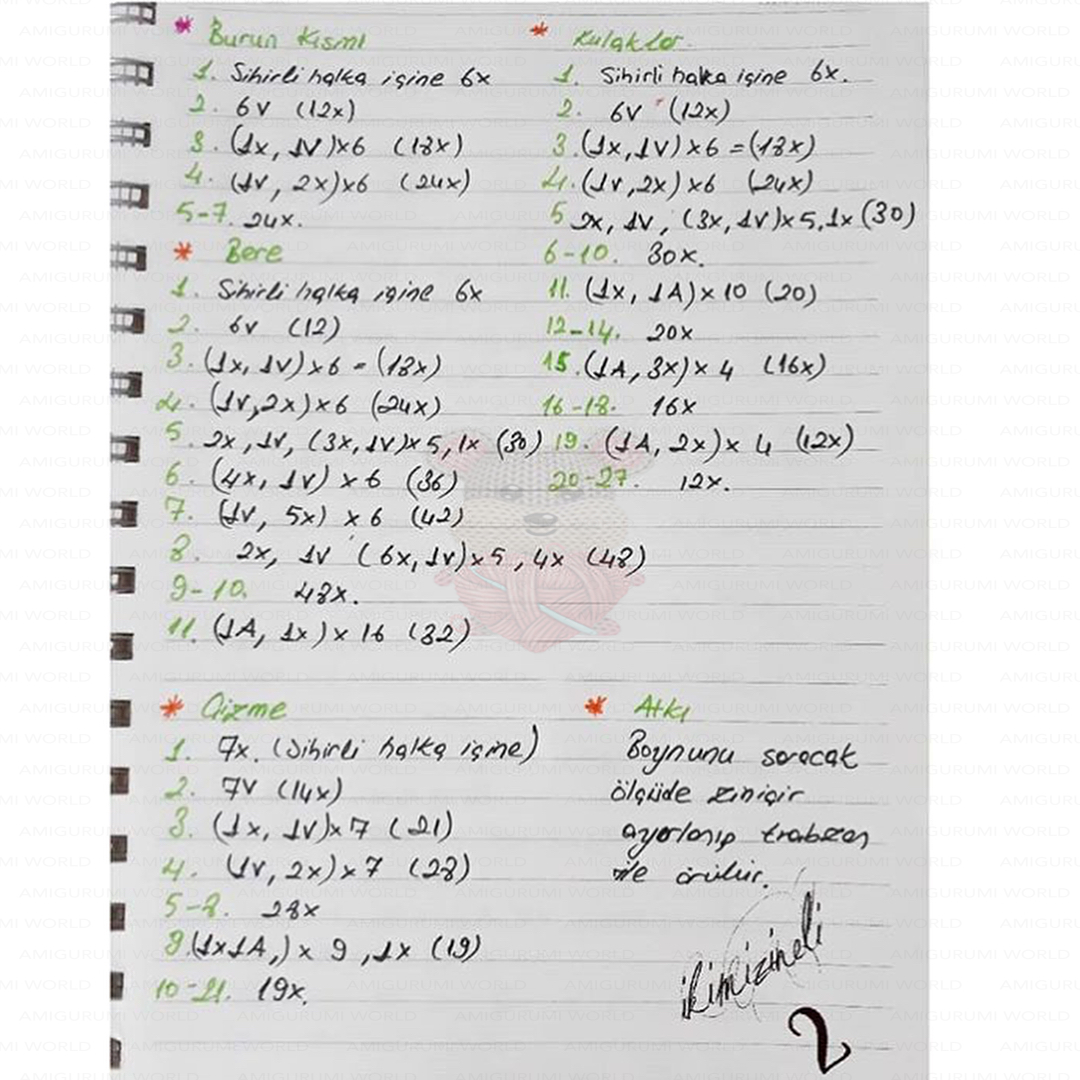 * Burun Kısmı
1. Sihirli halka içine 6x
2. 6V (12x)
3. (1x, 1V)x6 (18x)
4. (1v, 2x)x6 (24x)
5-7. 24x.
* Bere
1. Sihirli halka içine 6x
2. 6v (12)
3. (1x, 1v)x6 = (18x)
4. (1v, 2x)x6 (24x)
5. 2x, 1v, (3x, 1v)x5, 1x (30)
6. (4x, 1v) x 6 (36)
7. (1v, 5x) x 6 (42)
8. 2x, 1v (6x, 1v)x5, 4x (48)
9-10. 48x.
11. (1A, 1x) x 16 (32)
* Kulaklar.
1. Sihirli halka içine 6x.
2. 6V (12x)
3. (1x, 1V)x6 = (18x)
4. (1v, 2x)x6 (24x)
5 2x, 1v, (3x, 1v)x5, 1x (30)
6-10. 30x.
11. (1x, 1A)x 10 (20)
12-14. 20x
15. (1A, 3x)x 4 (16x)
16-18. 16x
19. (1A, 2x)x 4 (12x)
20-27. 12x.
* Çizme
1. 7x (Sihirli halka içine)
2. 7V (14x)
3. (1x, 1v)x 7 (21)
4. (1v, 2x)x7 (28)
5-8. 28x
9. (1x1A,) x 9, 1x (19)
10-21. 19x.
* Atkı
Boynunu saracak
ölçüde zincir
ayarlanıp trabzan
ile örülür.
ikimizineli
2
AMIGURUMI WORLD